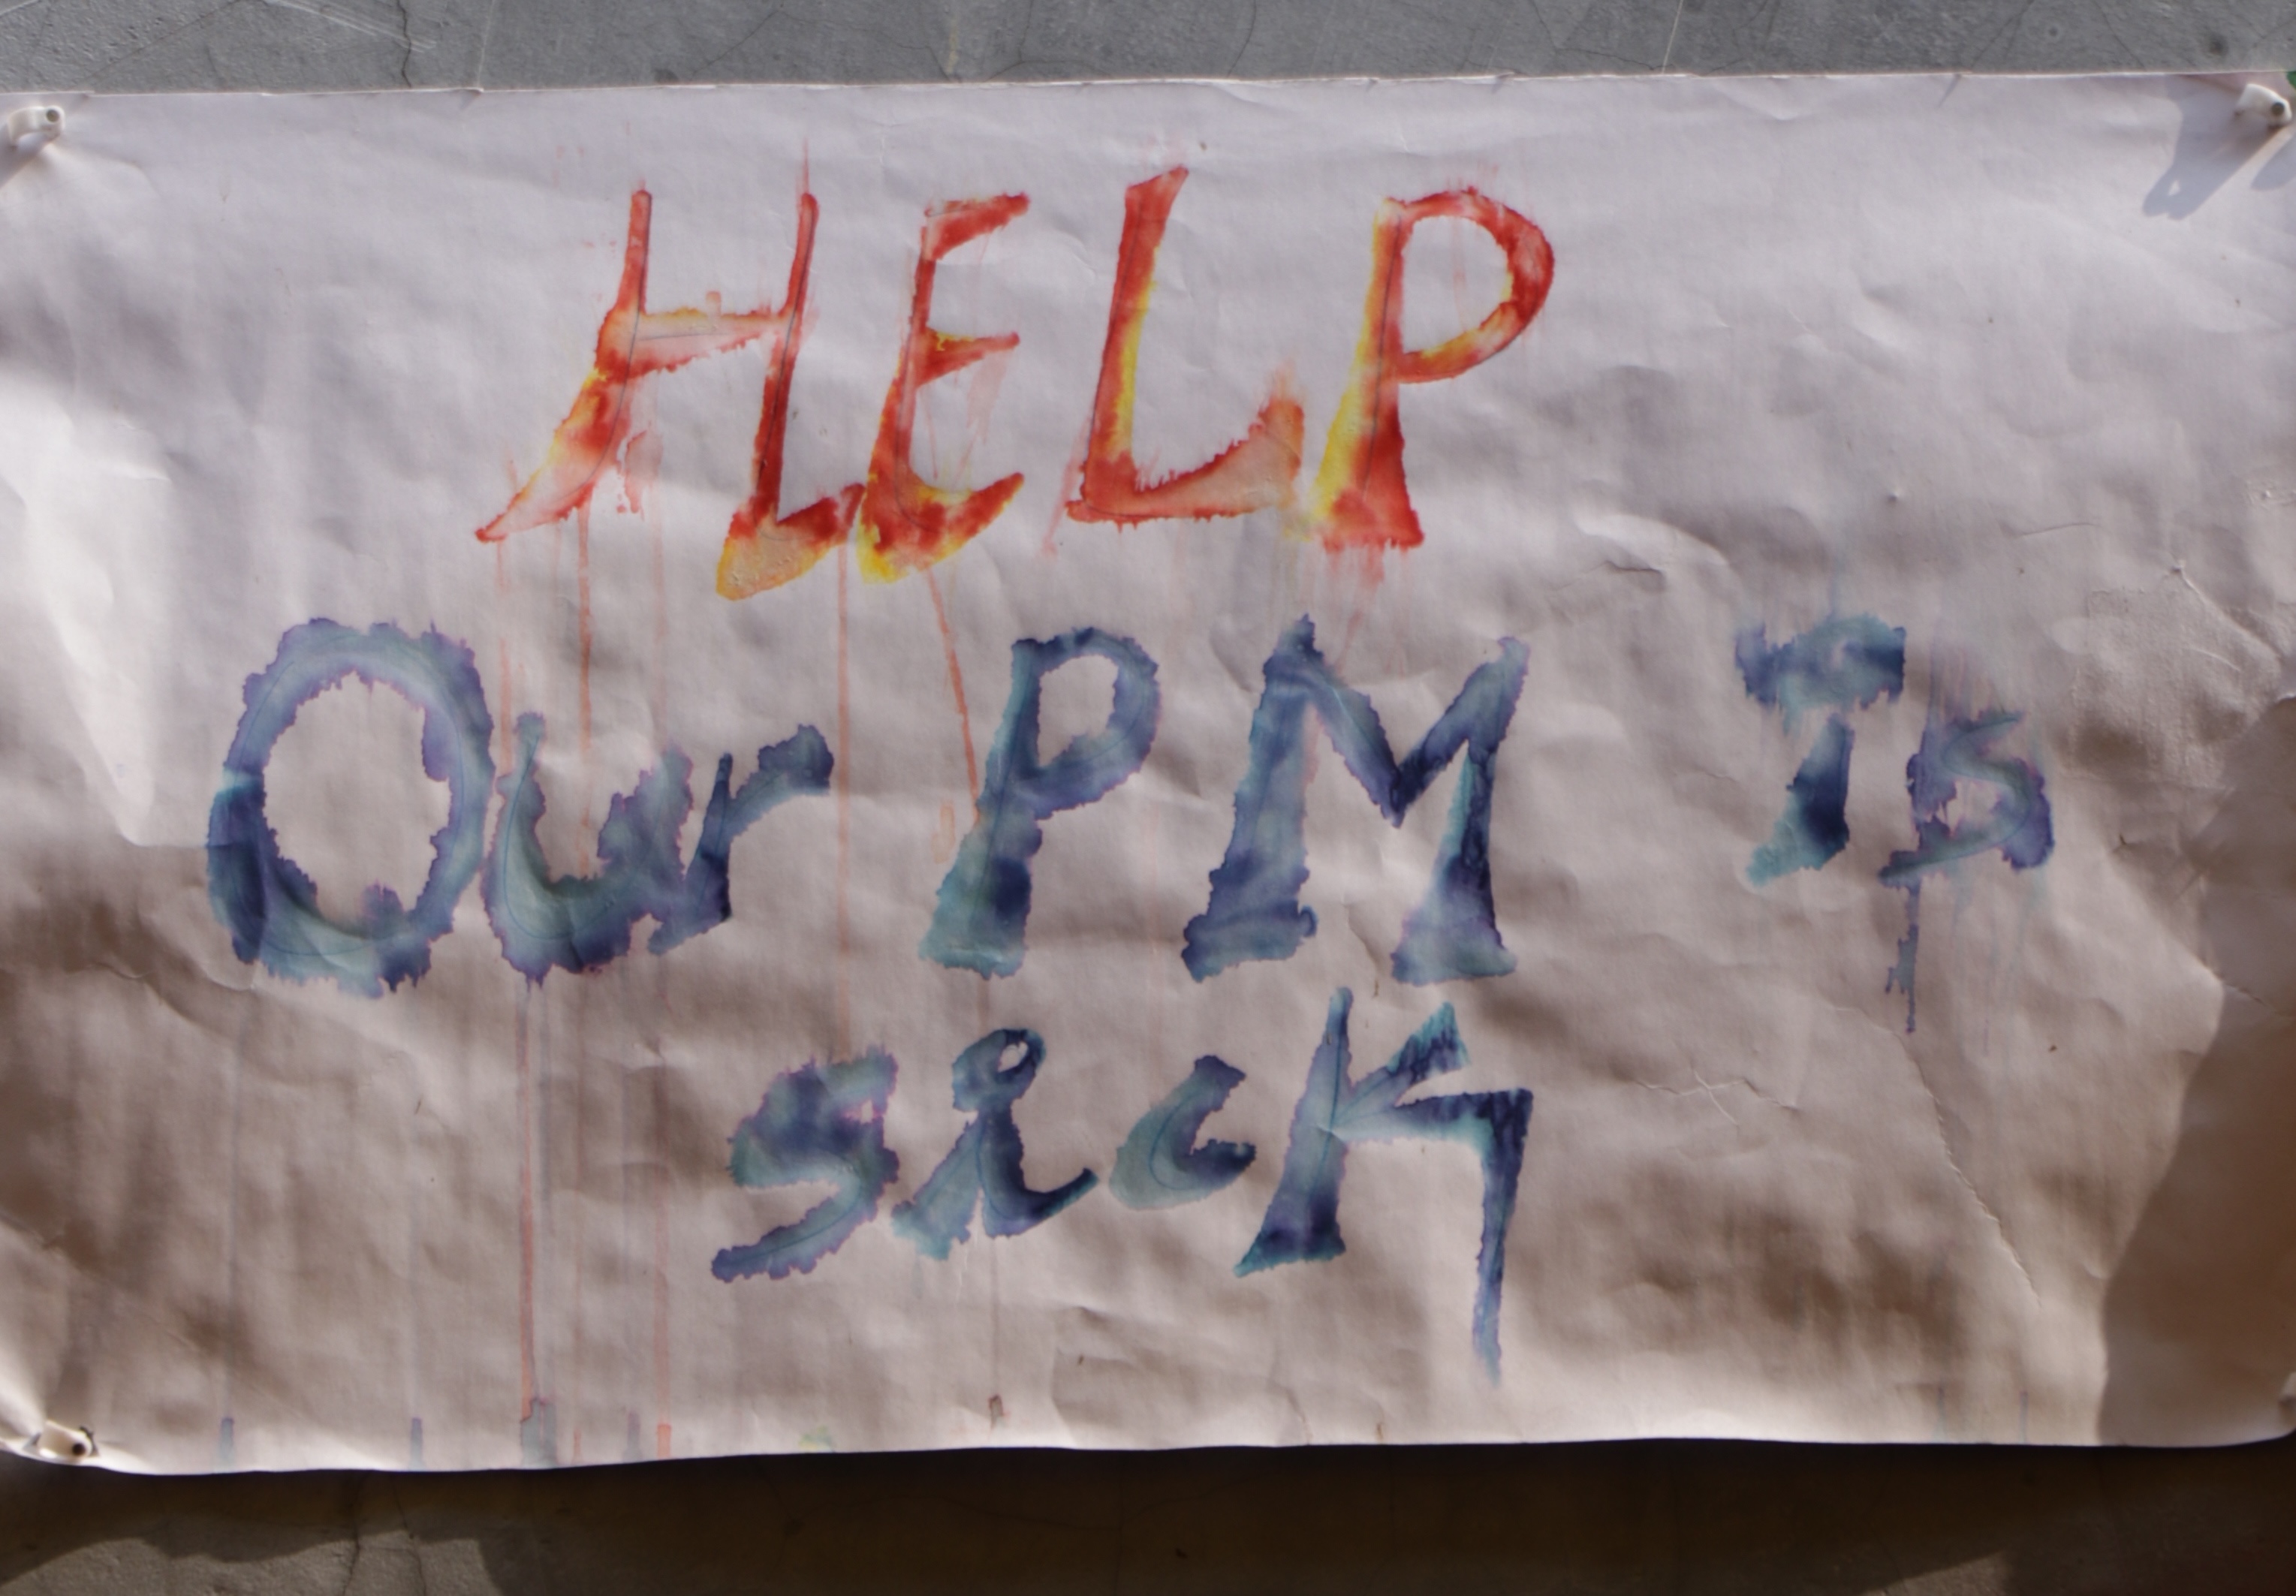 HELP
Our PM Is
sick